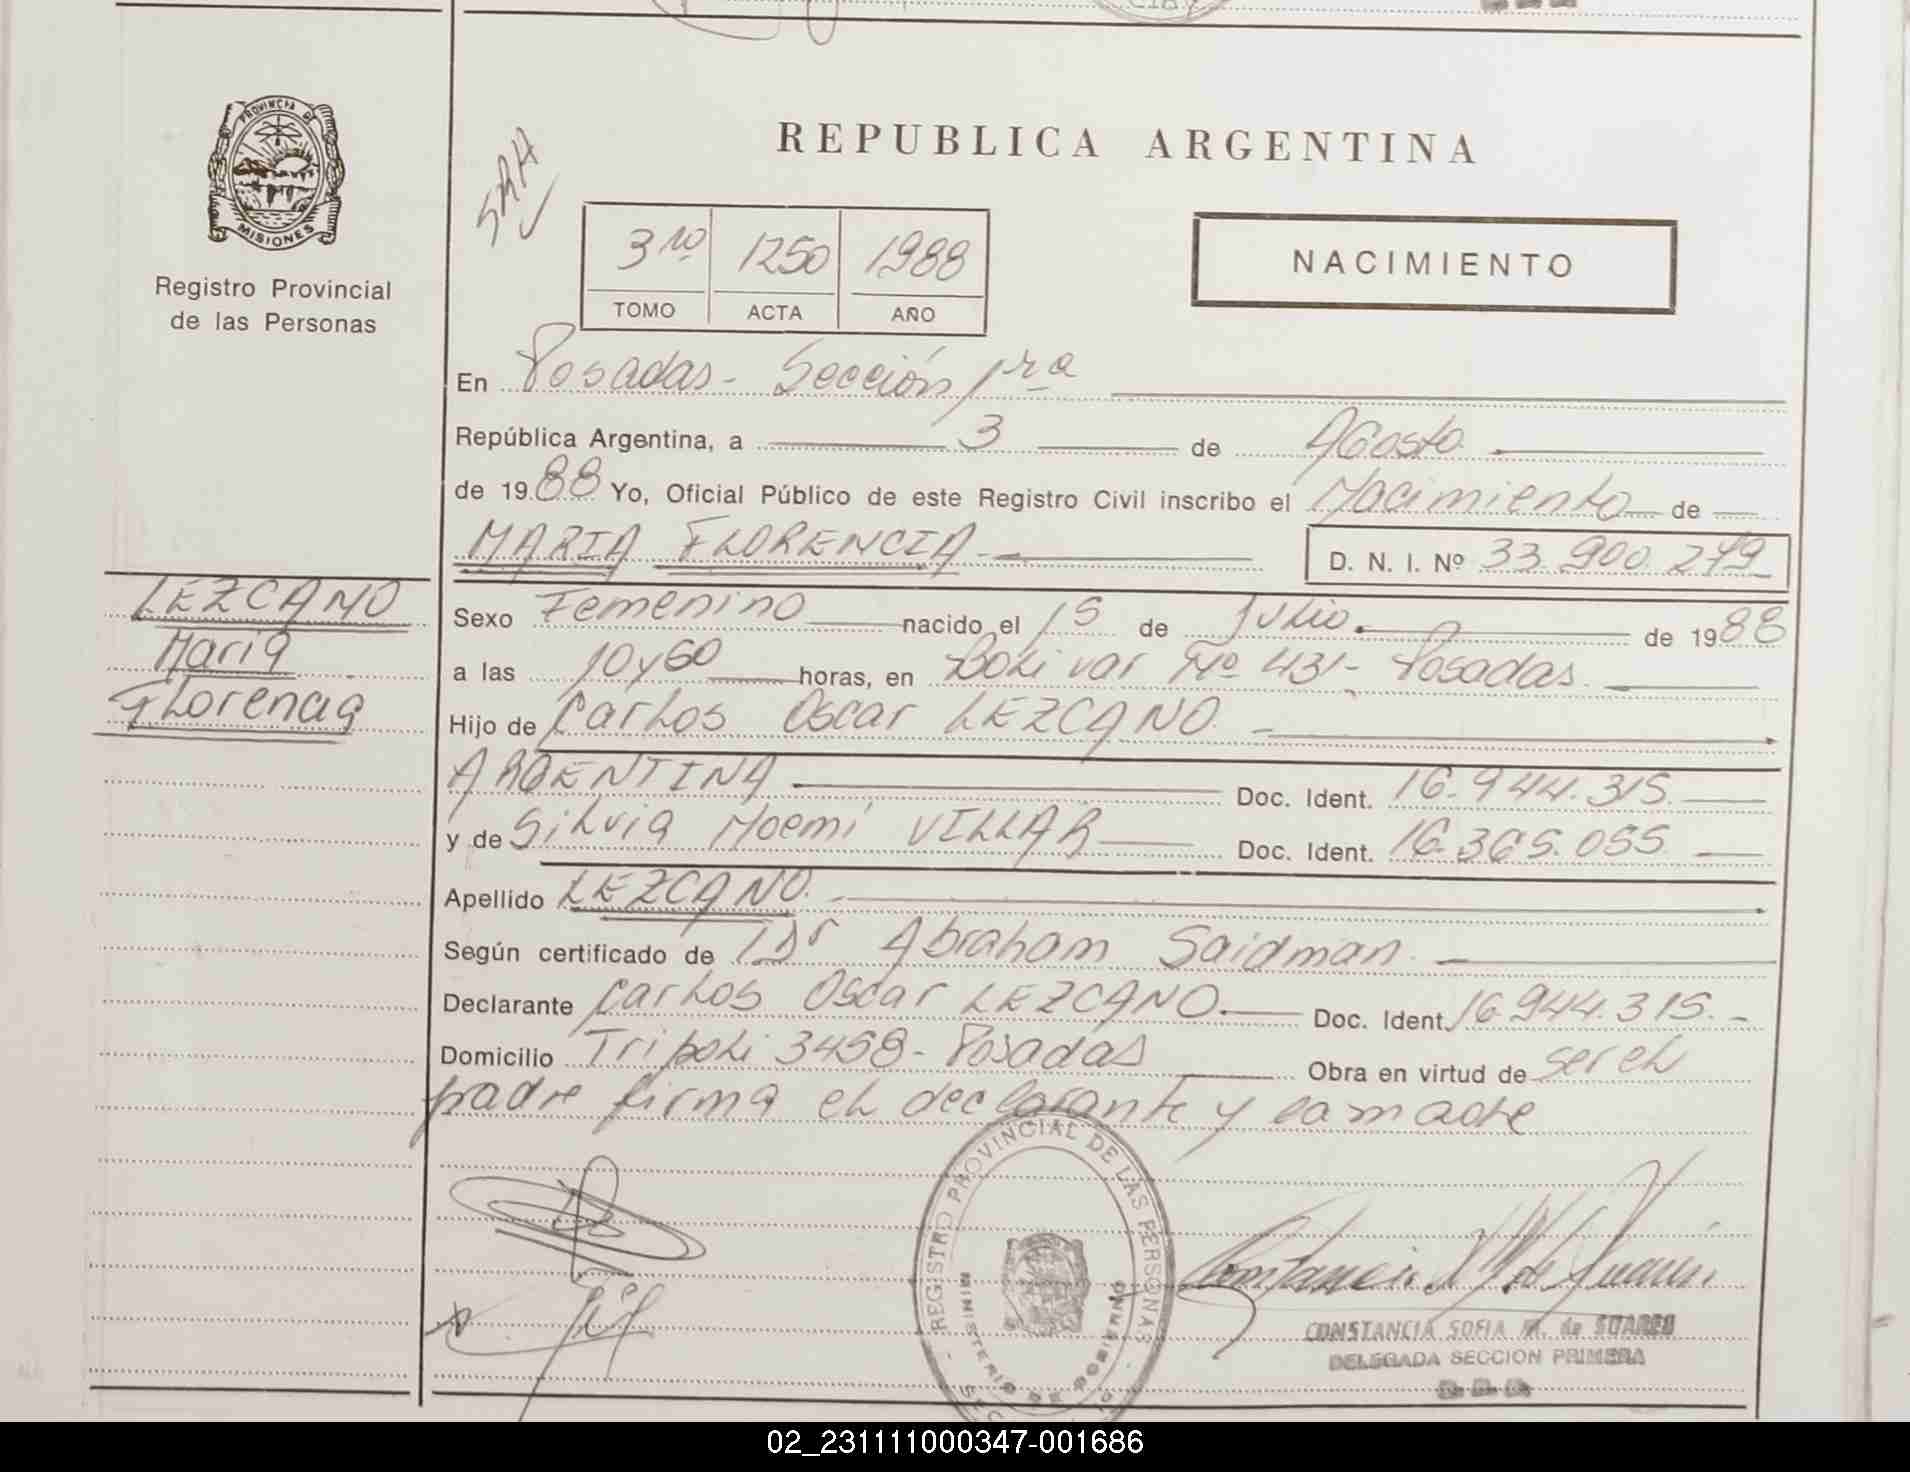 PROVINCIA DE
MISIONES
Registro Provincial
de las Personas
REPUBLICA ARGENTINA
3ro 1250 1988
TOMO ACTA AÑO
NACIMIENTO
En Posadas - Sección 1ra
República Argentina, a 3 de Agosto
de 1988 Yo, Oficial Público de este Registro Civil inscribo el Nacimiento de
MARIA FLORENCIA - D. N. I. Nº 33.900.279
LEZCANO
Maria
Florencia
Sexo Femenino nacido el 15 de Julio. de 1988
a las 10 y 60 horas, en Bolivar Nº 431 - Posadas
Hijo de Carlos Oscar LEZCANO.
ARGENTINA Doc. Ident. 16.944.315.
y de Silvia Noemí VILLAR Doc. Ident. 16.365.055
Apellido LEZCANO.
Según certificado de Dr Abraham Saidman.
Declarante Carlos Oscar LEZCANO. Doc. Ident. 16.944.315. -
Domicilio Tripoli 3458 - Posadas Obra en virtud de ser el
padre firma el declarante y la madre
REGISTRO PROVINCIAL DE LAS PERSONAS
MINISTERIO DE GOBIERNO
CONSTANCIA SOFIA M. de SUAREZ
DELEGADA SECCION PRIMERA
02_231111000347-001686